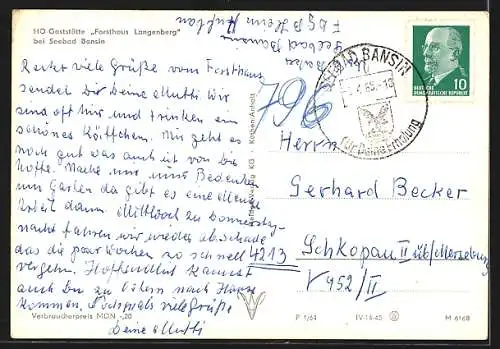 HO Gaststätte „Forsthaus Langenberg"
bei Seebad Bansin
Recht viele Grüße vom Forsthaus
sendet Dir Deine Mutti Wir
sind oft hier und trinken ein
schönes Käffchen. Mir geht es
noch gut was auch ich von Dir
hoffe.
im Garten da gibt es eine Menge
Arbeit dann Mittwoch zu Donnerstag-
nacht fahren wir wieder ab schade
das die paar Wochen so schnell
vergehn. Hoffentlich kannst
auch Du zu Ostern nach Hause
kommen. Nochmals viele Grüße
Deine Mutti
Verbraucherpreis MDN -,20
Seebad Bansin
FDGB Heim
796
SEEBAD BANSIN
Für Deine Erholung
10
DEUTSCHE
DEMOKRATISCHE REPUBLIK
Herrn
Gerhard Becker
4213 Schkopau II üb/Merseburg
V 452/II
P 1/64 IV-14-45 M 6168